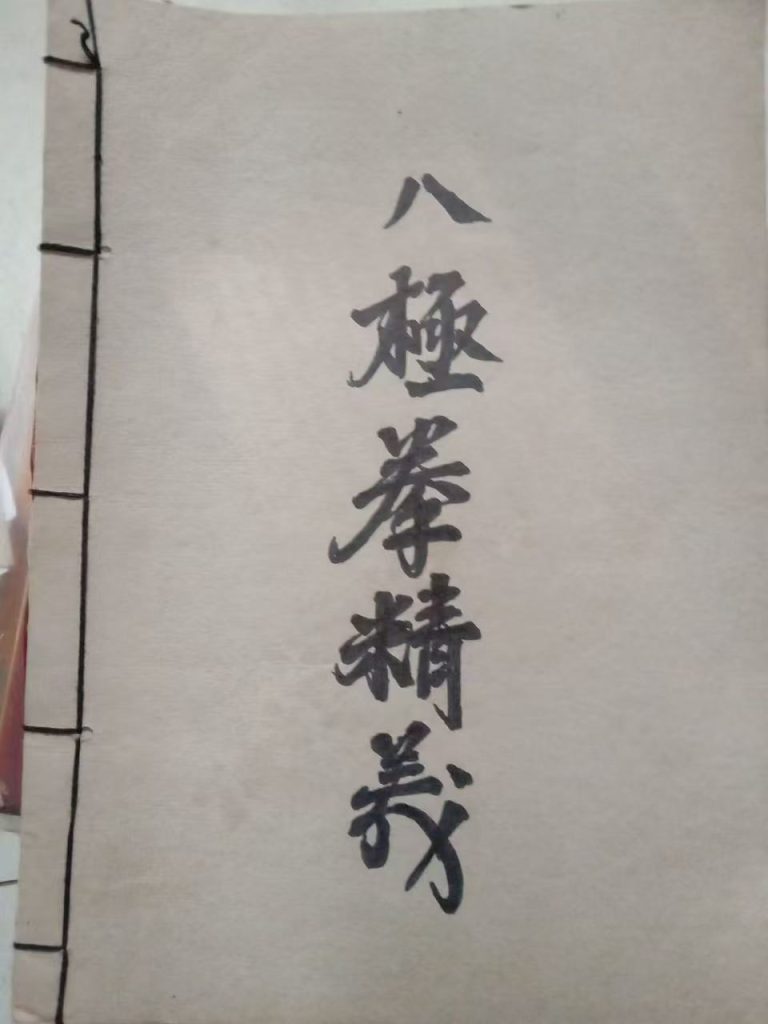 八極拳精義